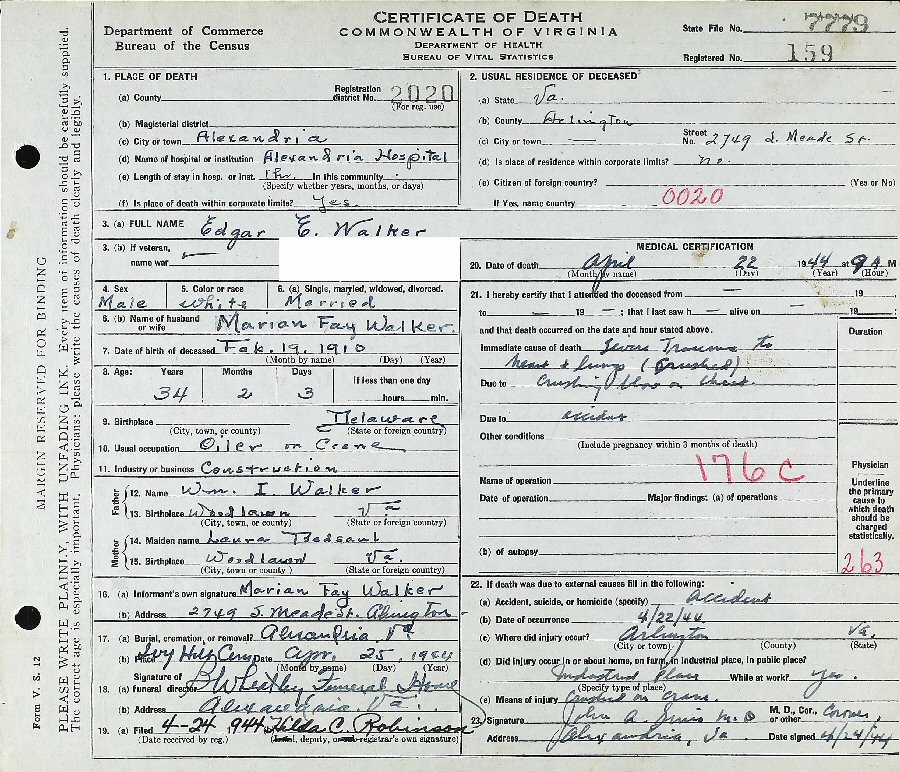 CERTIFICATE OF DEATH
COMMONWEALTH OF VIRGINIA
DEPARTMENT OF HEALTH
BUREAU OF VITAL STATISTICS
Department of Commerce
Bureau of the Census
State File No. 7779
Registered No. 159
MARGIN RESERVED FOR BINDING
PLEASE WRITE PLAINLY, WITH UNFADING INK. Every item of information should be carefully supplied.
The correct age is especially important. Physicians: please write the causes of death clearly and legibly.
Form V. S. 12
1. PLACE OF DEATH
(a) County
Registration district No. 2020
(For reg. use)
(b) Magisterial district
(c) City or town Alexandria
(d) Name of hospital or institution Alexandria Hospital
(e) Length of stay in hosp. or inst. 1 hr. In this community
(Specify whether years, months, or days)
(f) Is place of death within corporate limits? Yes
2. USUAL RESIDENCE OF DECEASED:
(a) State Va.
(b) County Arlington
(c) City or town — Street No. 2749 S. Meade St.
(d) Is place of residence within corporate limits? no
(e) Citizen of foreign country? (Yes or No)
If Yes, name country 0020
3. (a) FULL NAME Edgar E. Walker
3. (b) If veteran, name war —
4. Sex Male
5. Color or race White
6. (a) Single, married, widowed, divorced. Married
6. (b) Name of husband or wife Marian Fay Walker.
7. Date of birth of deceased Feb. 19, 1910
(Month by name) (Day) (Year)
8. Age: Years Months Days If less than one day
34 2 3 hours min.
9. Birthplace Delaware
(City, town, or county) (State or foreign country)
10. Usual occupation Oiler on Crane
11. Industry or business Construction
Father
12. Name Wm. I. Walker
13. Birthplace Woodlawn Va
(City, town, or county) (State or foreign country)
Mother
14. Maiden name Laura Bedsaul
15. Birthplace Woodlawn Va
(City, town, or county) (State or foreign country)
16. (a) Informant's own signature Marian Fay Walker
(b) Address 2749 S. Meade St. Arlington
17. (a) Burial, cremation, or removal? Alexandria Va
(b) Place Ivy Hill Cem Date Apr. 25, 1944
(Month by name) (Day) (Year)
18. Signature of
(a) funeral director B Wheatley Funeral Home
(b) Address Alexandria, Va.
19. (a) Filed 4-24 1944 Hilda C. Robinson
(Date received by reg.) (Local, deputy, or sub-registrar's own signature)
MEDICAL CERTIFICATION
20. Date of death April 22 1944 at 9 A M
(Month by name) (Day) (Year) (Hour)
21. I hereby certify that I attended the deceased from — 19
to — 19 — ; that I last saw h — alive on — 19
and that death occurred on the date and hour stated above.
Duration
Immediate cause of death Severe Trauma to
heart & lungs (Crushed)
Due to Crushing blow on chest.
Due to accident
Other conditions
(Include pregnancy within 3 months of death)
176 C
Name of operation
Date of operation Major findings: (a) of operations
(b) of autopsy
Physician
Underline the primary cause to which death should be charged statistically.
263
22. If death was due to external causes fill in the following:
(a) Accident, suicide, or homicide (specify) accident
(b) Date of occurrence 4/22/44
(c) Where did injury occur? Arlington Va.
(City or town) (County) (State)
(d) Did injury occur in or about home, on farm, in industrial place, in public place?
Industrial Place While at work? yes.
(Specify type of place)
(e) Means of injury Crushed on Crane
23. Signature John A Sims M.D M. D., Cor., or other Coroner
Address Alexandria, Va Date signed 4/24/44